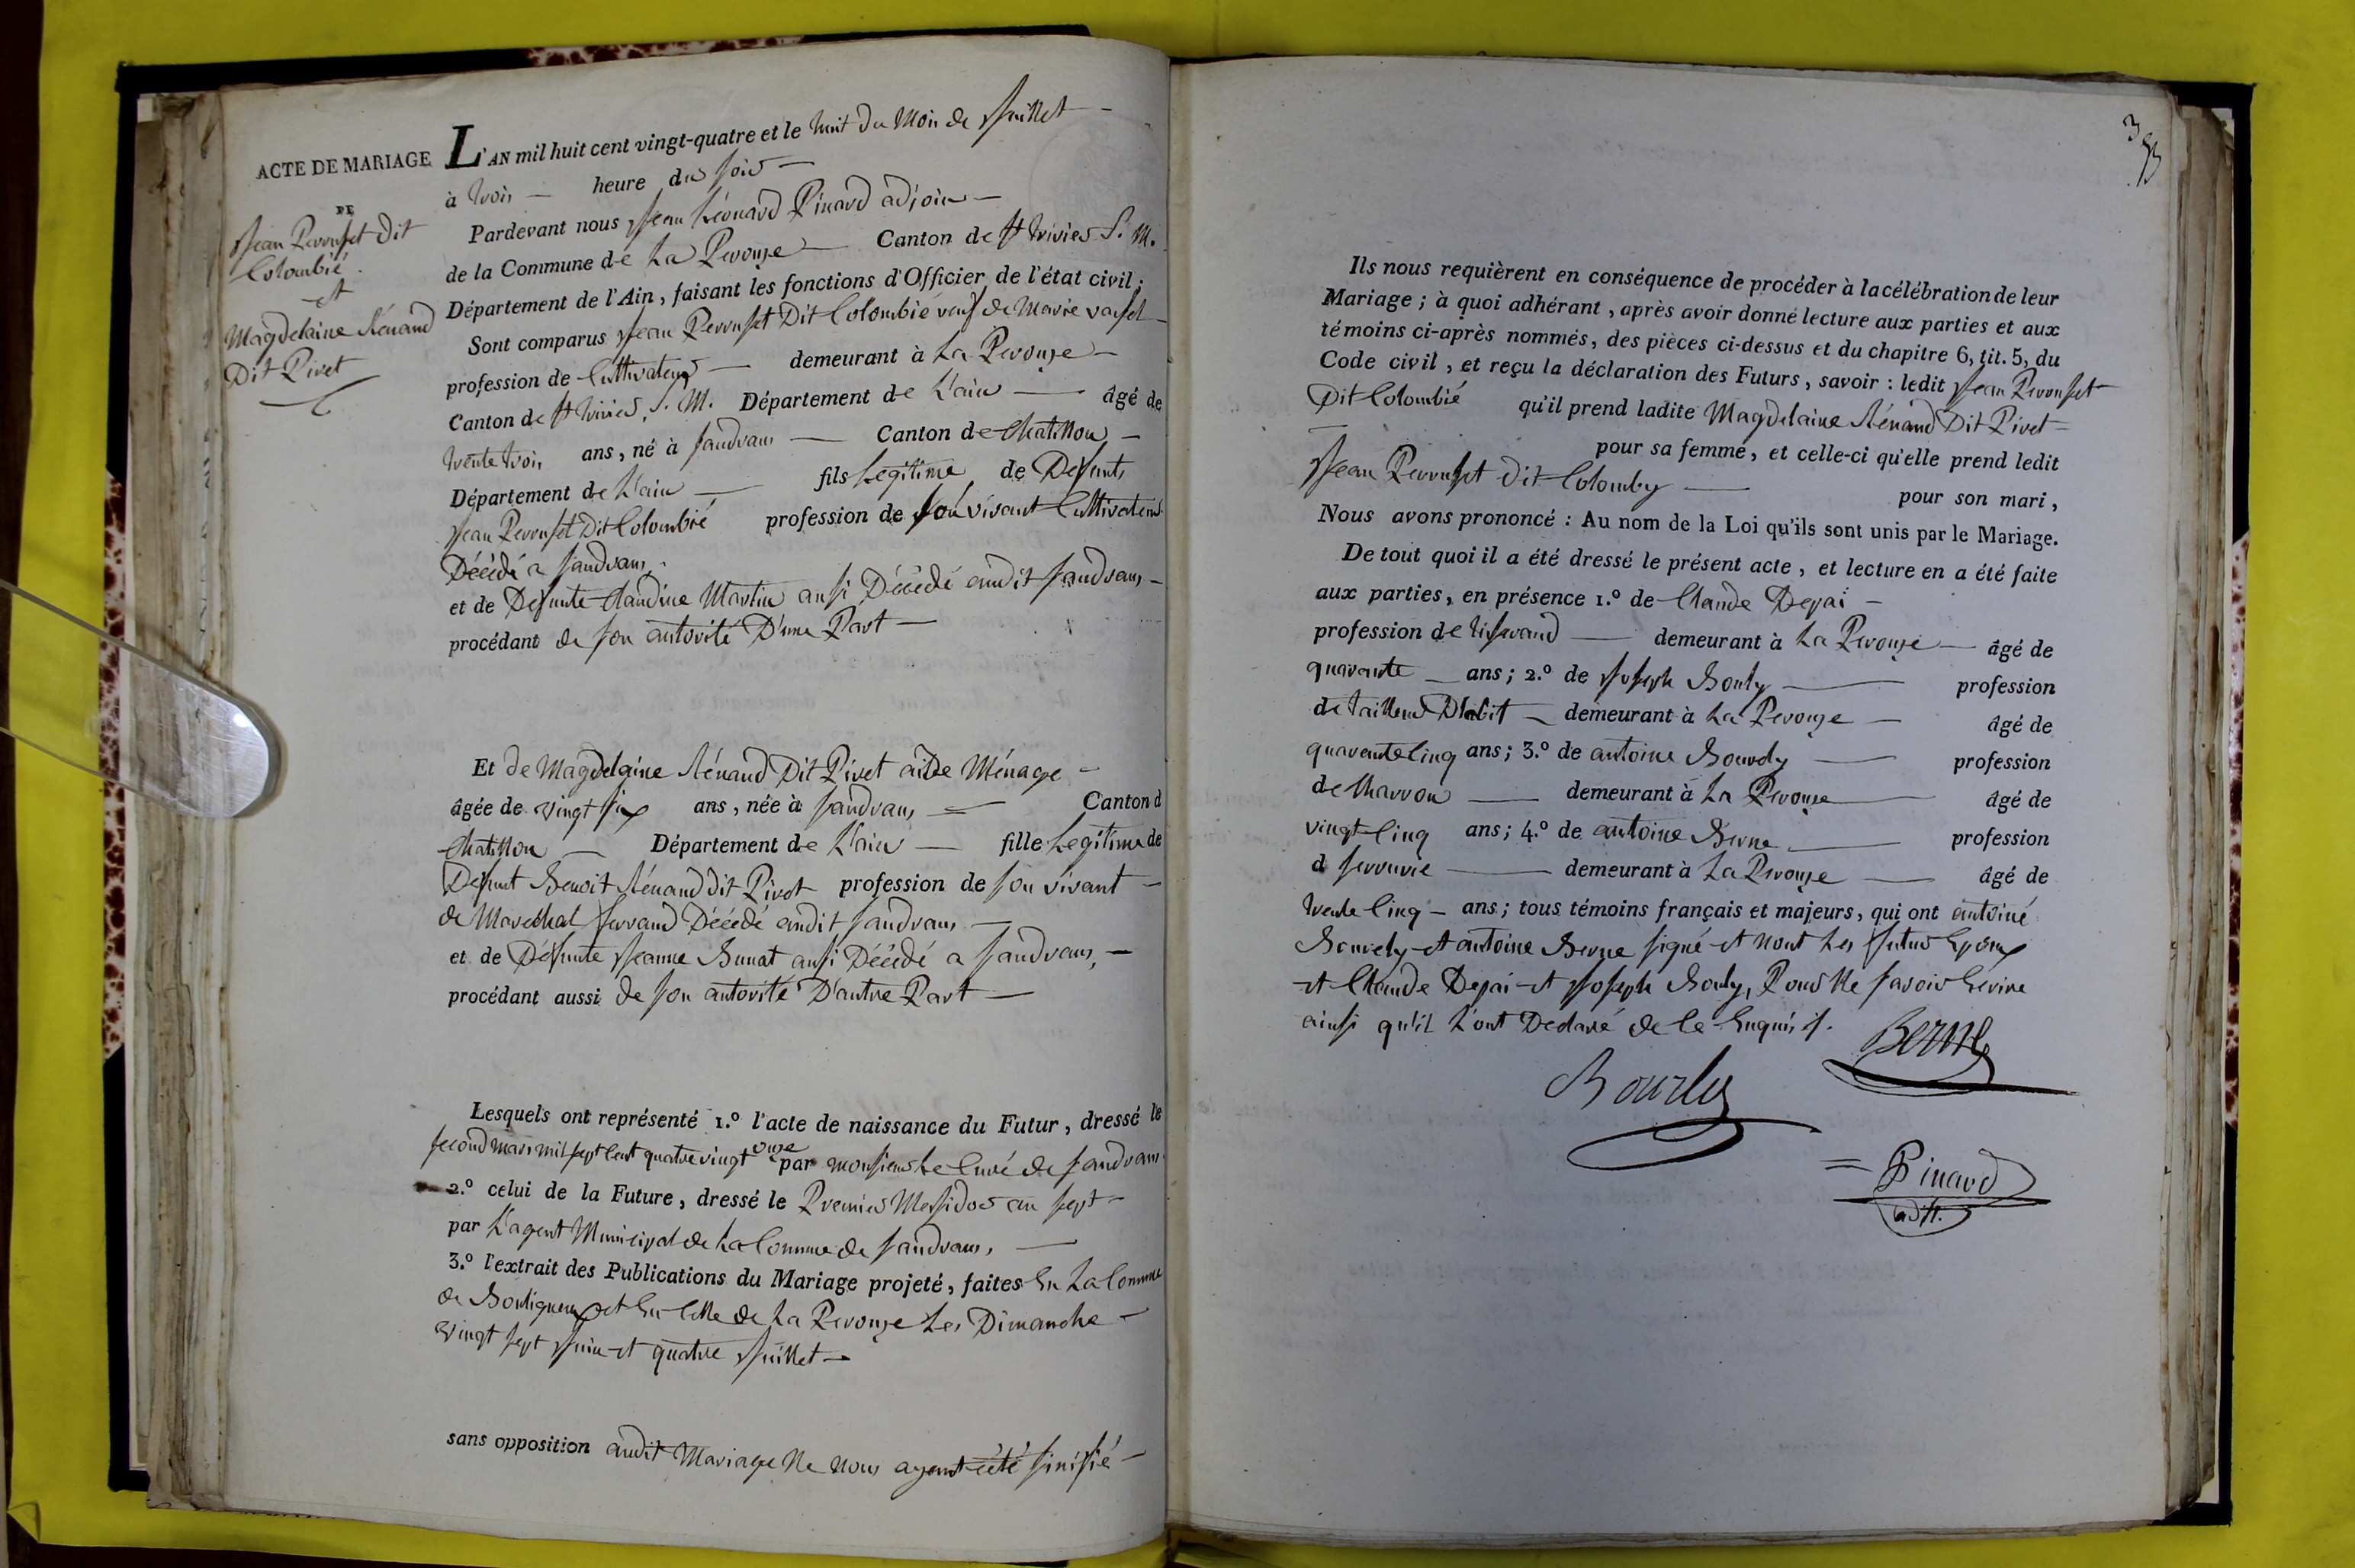 ACTE DE MARIAGE
DE
Jean Perruset dit
Colombié
et
Magdelaine Rénand
Dit Pivet
L'AN mil huit cent vingt-quatre et le huit du Mois de Juillet
à trois heure du soir
Pardevant nous Jean Léonard Pinard adjoin
de la Commune de La Perouze Canton de St trivier S. M.
Département de l'Ain, faisant les fonctions d'Officier de l'état civil;
Sont comparus Jean Perruset Dit Colombié veuf de Marie
profession de Cultivateur demeurant à La Perouze
Canton de St trivier S. M. Département de L'ain âgé de
trente trois ans, né à Sandrans Canton de Chatillon
Département de L'ain fils Legitime de Defunts
Jean Perruset Dit Colombié profession de son vivant Cultivateur
Décédé a Sandrans
et de Defunte Claudine Martin ausi Décédé audit Sandrans
procédant de son autorité D'une Part
Et de Magdelaine Rénand Dit Pivet aide Ménage
âgée de vingt six ans, née à Sandrans Canton d
Chatillon Département de L'ain fille Legitime de
Defunt Benoit Rénand dit Pivot profession de son vivant
de Maréchal ferrand Décédé audit Sandrans
et de Défunte Jeanne Bunat ausi Décédé a Sandrans
procédant aussi de son autorité D'autre Part
Lesquels ont représenté 1.º l'acte de naissance du Futur, dressé le
second mars mil sept cent quatre vingt onze par monsieur le Curé de Sandrans
2.º celui de la Future, dressé le Premier Messidor an sept
par L'agent Municipal de La Commune de Sandrans,
3.º l'extrait des Publications du Mariage projeté, faites En La Commune
de Bouligneux et En Celle de La Perouze Les Dimanche
vingt sept Juin et quatre Juillet
sans opposition audit Mariage Ne Nous ayant été sinifié
Ils nous requièrent en conséquence de procéder à la célébration de leur
Mariage; à quoi adhérant, après avoir donné lecture aux parties et aux
témoins ci-après nommés, des pièces ci-dessus et du chapitre 6, tit. 5, du
Code civil, et reçu la déclaration des Futurs, savoir: ledit Jean Perruset
Dit Colombié qu'il prend ladite Magdelaine Rénand Dit Pivet
pour sa femme, et celle-ci qu'elle prend ledit
Jean Perruset dit Colomby pour son mari,
Nous avons prononcé: Au nom de la Loi qu'ils sont unis par le Mariage.
De tout quoi il a été dressé le présent acte, et lecture en a été faite
aux parties, en présence 1.º de Claude Depai
profession de tiserand demeurant à La Perouze âgé de
quarante ans; 2.º de Joseph Bouly profession
de tailleur D'habit demeurant à La Perouze âgé de
quarante Cinq ans; 3.º de antoine Bourdy profession
de Charron demeurant à La Perouze âgé de
vingt Cinq ans; 4.º de antoine Berne profession
d serrurie demeurant à La Perouze âgé de
trente Cinq ans; tous témoins français et majeurs, qui ont antoine
Bourdy et antoine Berne signé et nont Les futur Epoux
et Claude Depai et Joseph Bouly, Pour Ne savoir Ecrire
ainsi qu'il L'ont Declaré de Ce Enquis
Berne
Bourdy
Pinard
adjt.